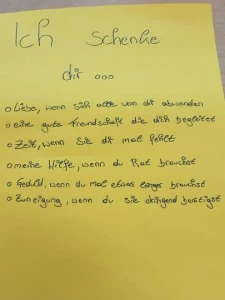 Ich schenke
dir ...
o Liebe, wenn sich alle von dir abwenden
o eine gute Freundschaft die dich begleitet
o Zeit, wenn Sie dir mal fehlt
o meine Hilfe, wenn du Rat brauchst
o Geduld, wenn du mal etwas länger brauchst
o Zuneigung, wenn du sie dringend benötigst